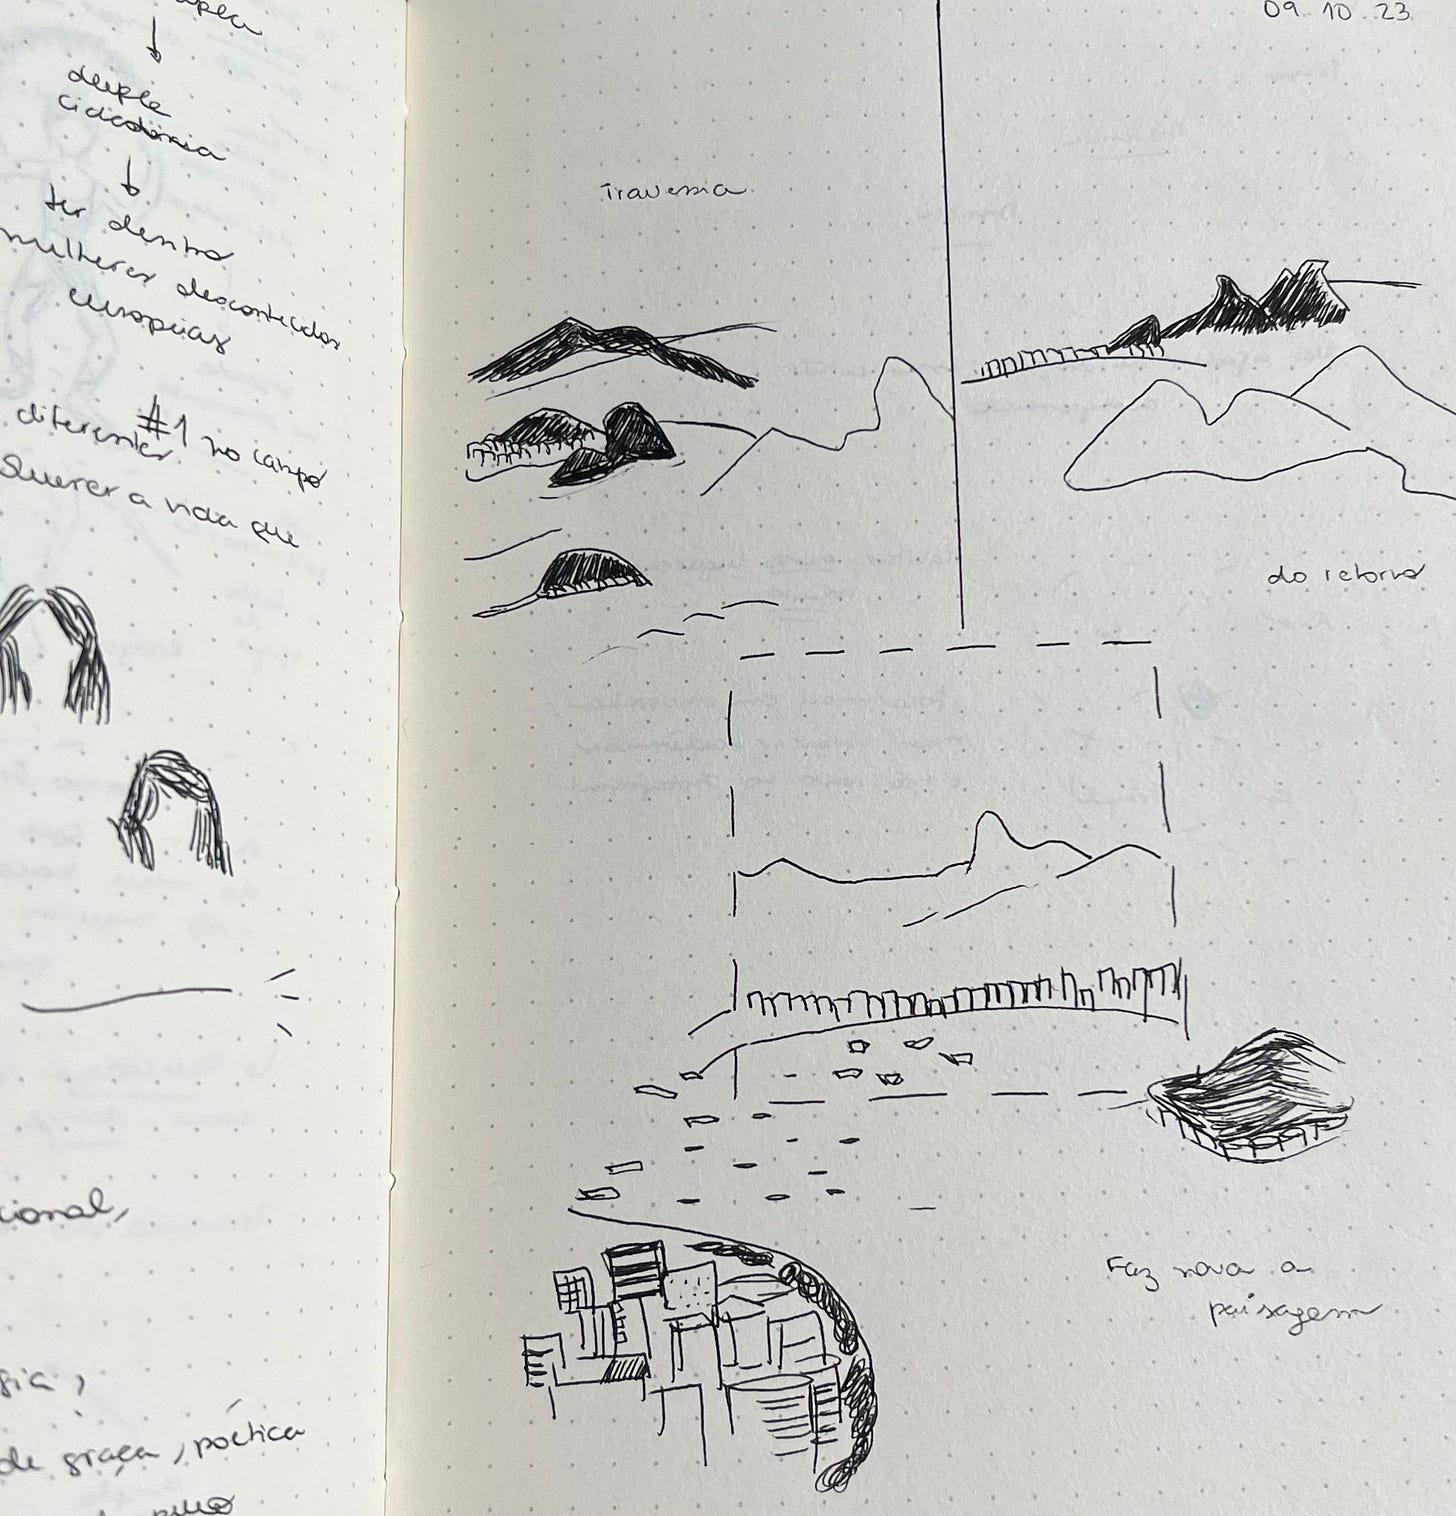 ↓
dupla
cidadania
↓
ter dentro
mulheres desconhecidas
europeias
#1 no campo
diferentes
querer a vida que
cional,
gia,
de graça, poética
09.10.23
Travessia
do retorno
Faz nova a
paisagem